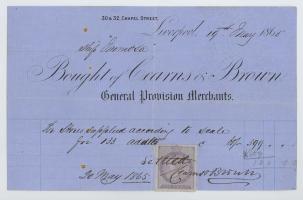 30 & 32, CHAPEL STREET,
Liverpool, 19th May 1865
Ship
Bought of Cearns & Brown
General Provision Merchants.
To Stores supplied according to scale
for 133 adults @ 60/- 399 " "
Settled
20 May 1865 Cearns & Brown